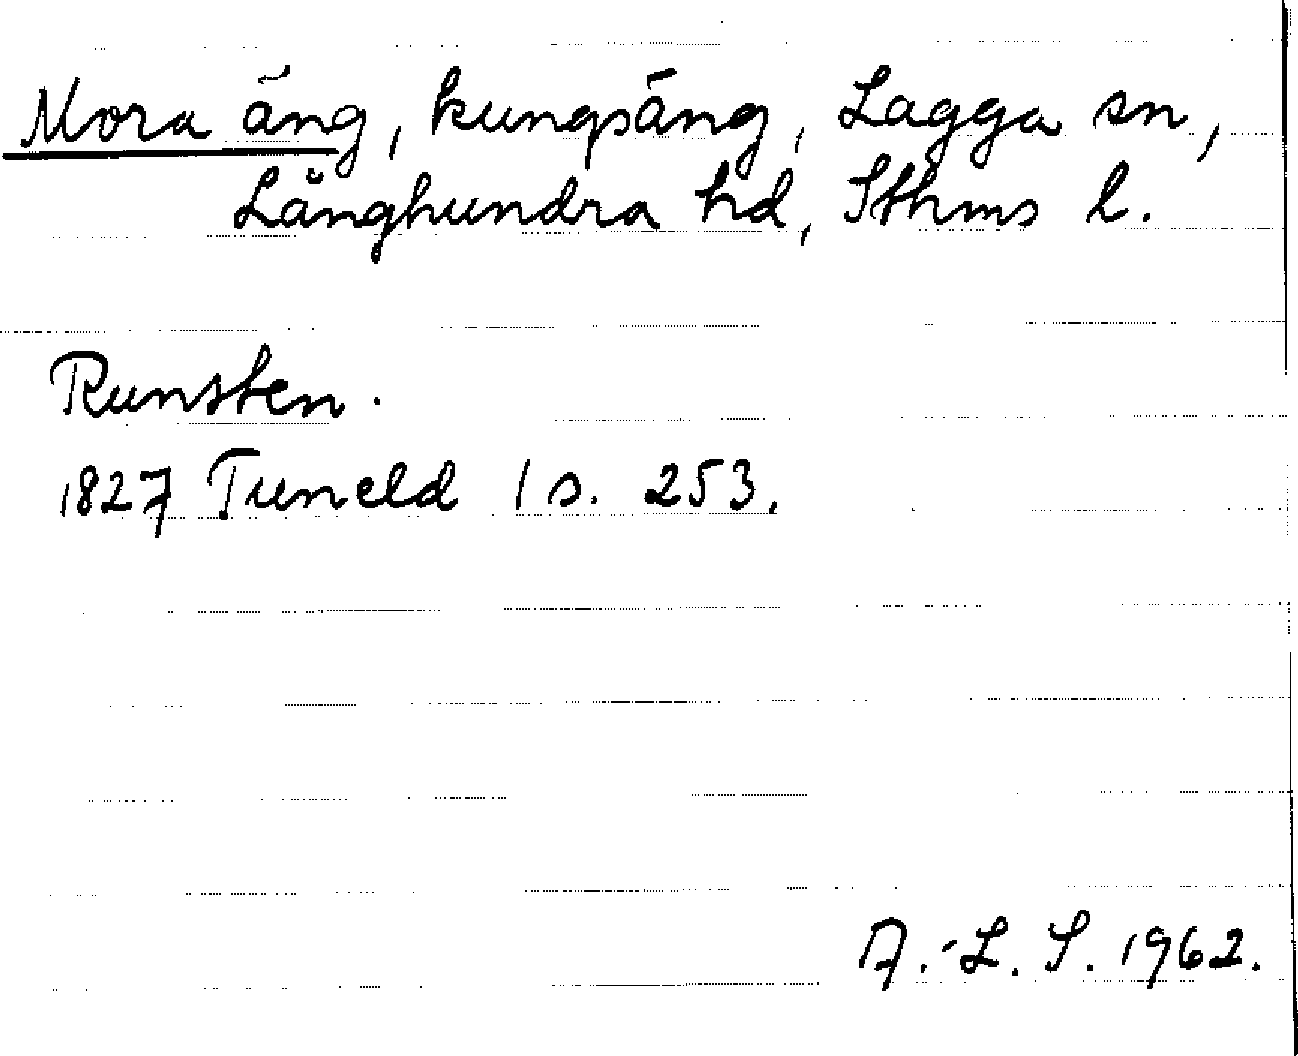 Mora äng, kungsäng, Lagga sn,
Långhundra hd, Sthms l.
Runsten.
1827 Tuneld 1 s. 253.
A.-L. S. 1962.